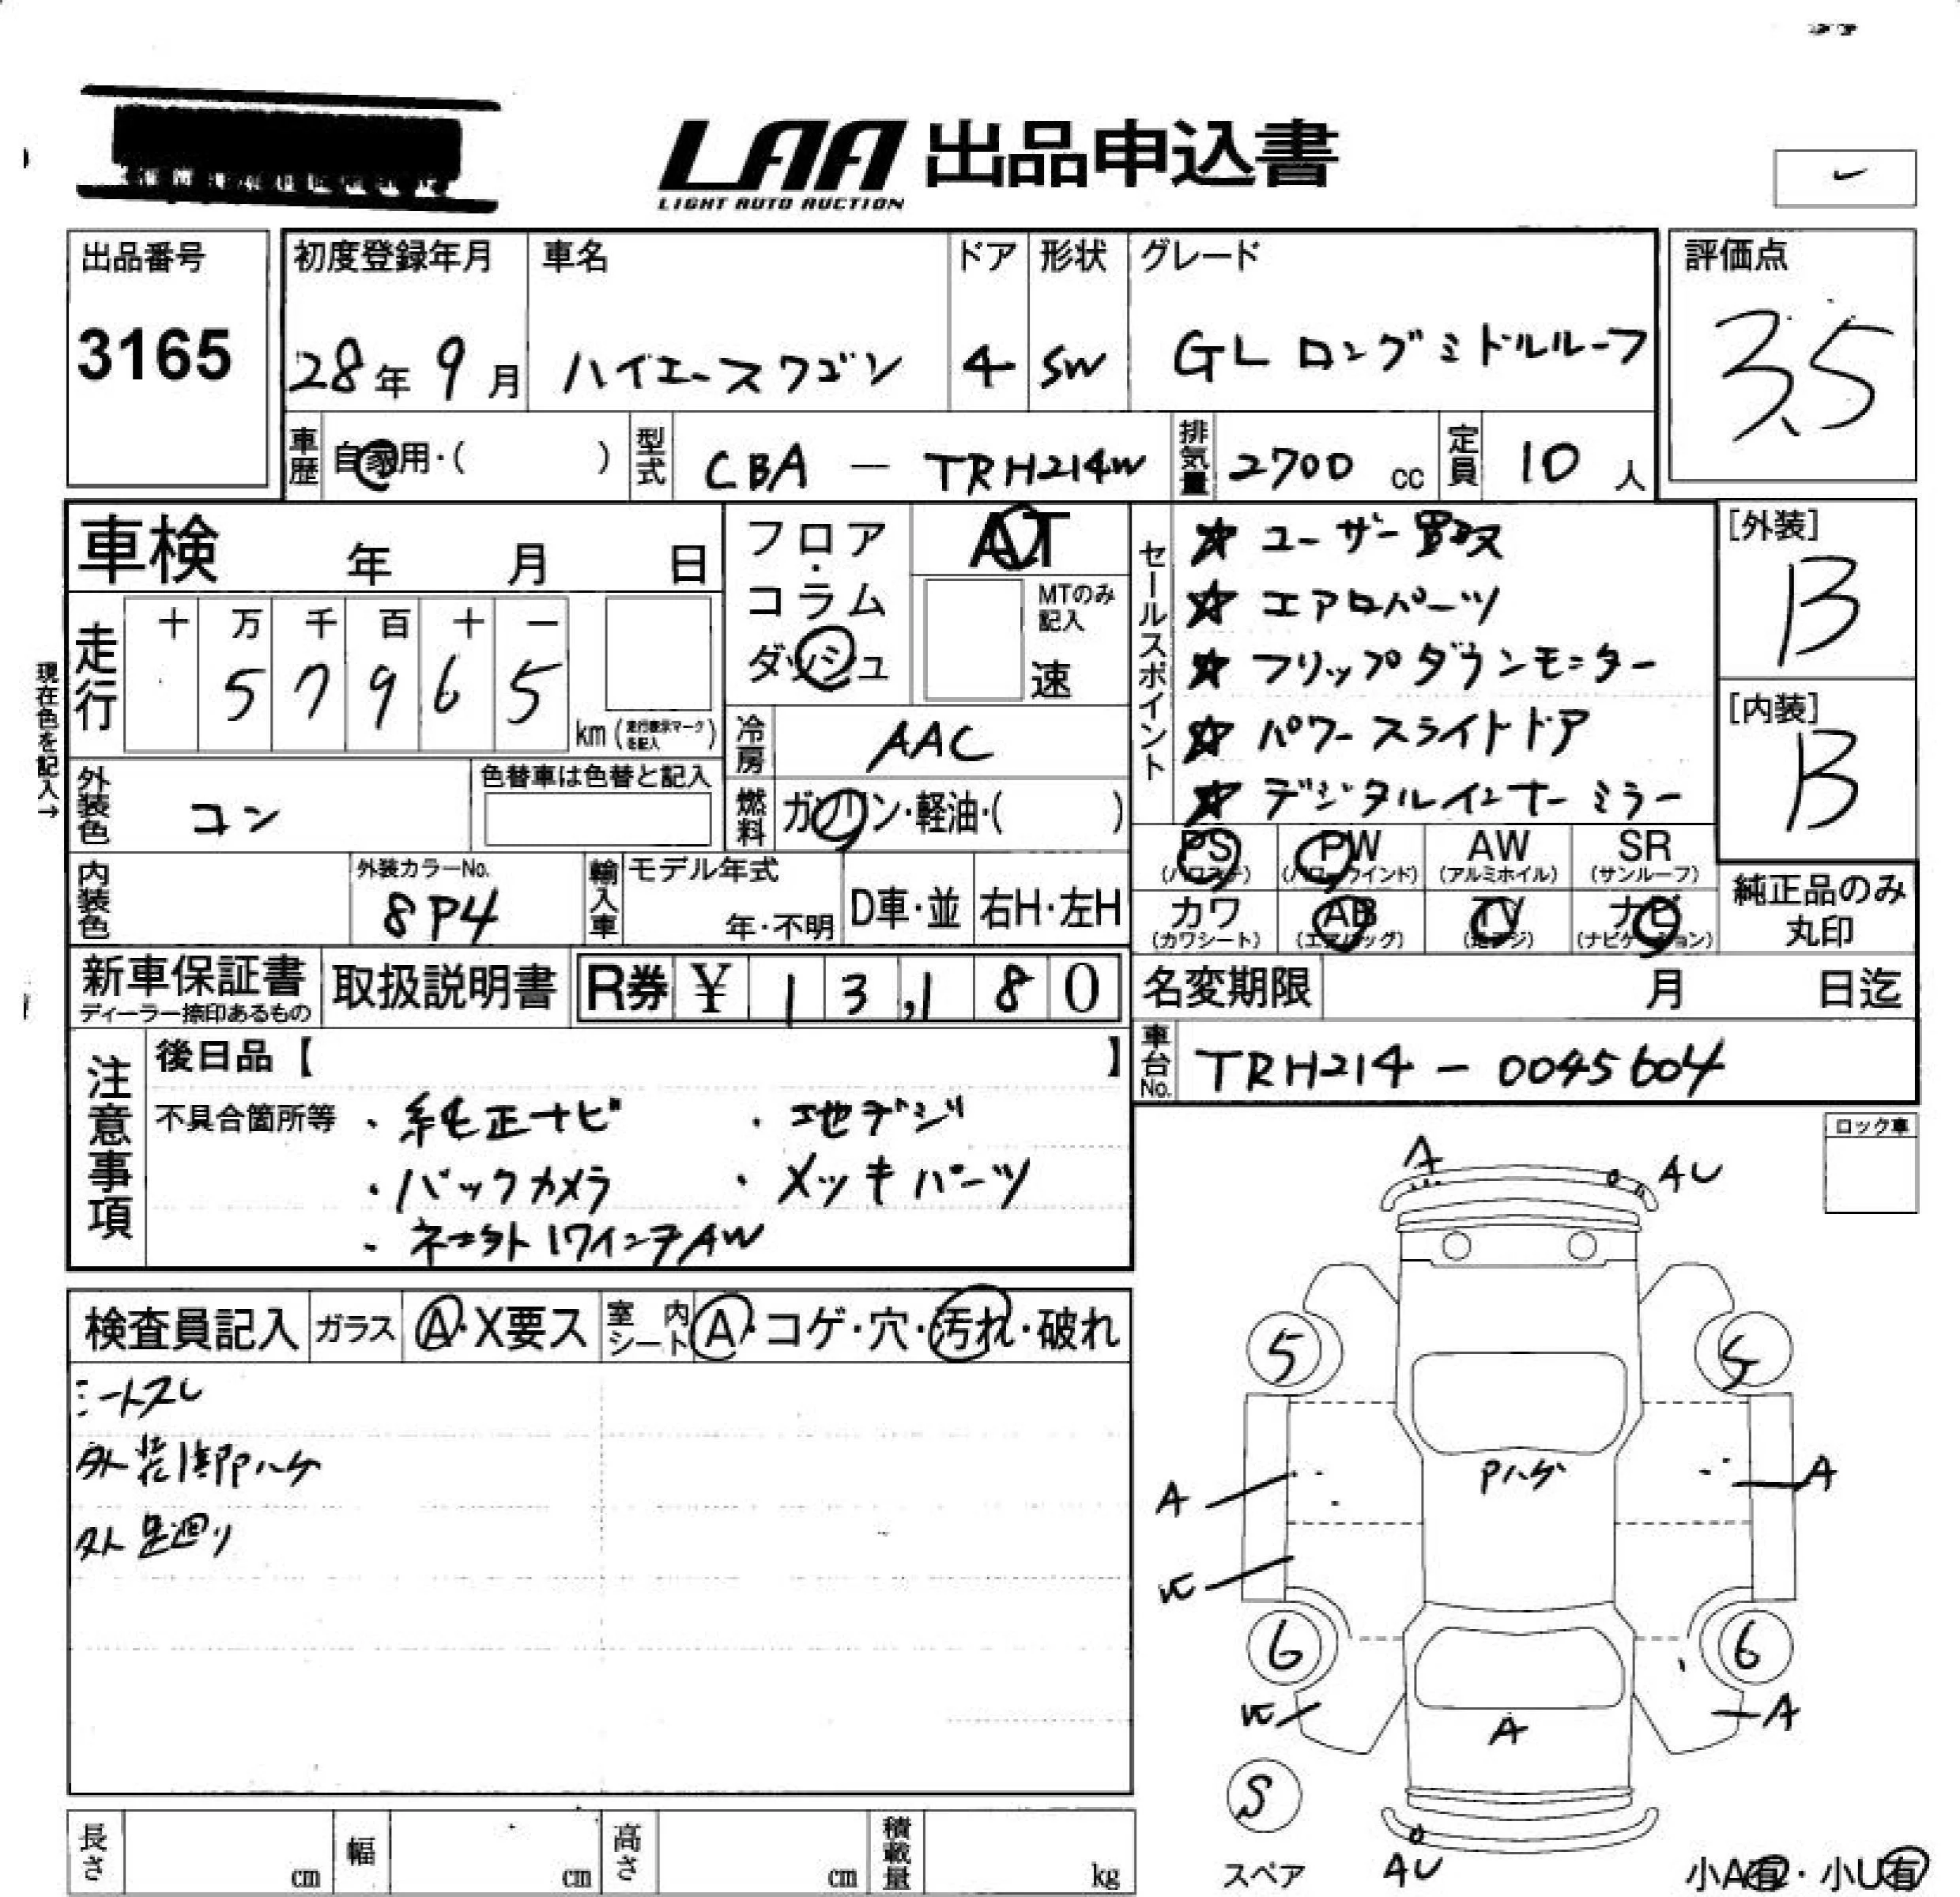 LAA 出品申込書
LIGHT AUTO AUCTION
出品番号
3165
初度登録年月
28年 9月
車名
ハイエースワゴン
ドア
4
形状
SW
グレード
GL ロングミドルルーフ
評価点
3.5
車歴 自家用・( )
型式 CBA - TRH214W
排気量 2700 cc
定員 10 人
車検 年 月 日
走行 十 万 千 百 十 一
5 7 9 6 5 km
現在色を記入→
外装色 コン
色替車は色替と記入
内装色
外装カラーNo.
8P4
輸入車 モデル年式
年・不明 D車・並 右H・左H
フロア・コラム
ダッシュ
AT
MTのみ記入
速
冷房 AAC
燃料 ガソリン・軽油・( )
セールスポイント
☆ ユーザー買取
☆ エアロパーツ
☆ フリップダウンモニター
☆ パワースライドドア
☆ デジタルインナーミラー
[外装]
B
[内装]
B
PS PW AW SR
(パワステ) (パワーウインド) (アルミホイル) (サンルーフ)
カワ AB TV ナビ
(カワシート) (エアバッグ) (地デジ) (ナビゲーション)
純正品のみ
丸印
新車保証書
ディーラー捺印あるもの
取扱説明書
R券 ¥ 1 3,1 8 0
名変期限 月 日迄
車台No. TRH214 - 0045604
注意事項
後日品【 】
不具合箇所等 ・純正ナビ ・地デジ
・バックカメラ ・メッキパーツ
・社外17インチAW
ロック車
検査員記入 ガラス A・X要ス 室内シート A・コゲ・穴・汚れ・破れ
シートスレ
外装1部Pハゲ
外 足廻り
A
AU
5
5
Pハゲ
A
A
6
6
A
A
S
スペア
AU
小A有・小U有
長さ cm 幅 cm 高さ cm 積載量 kg